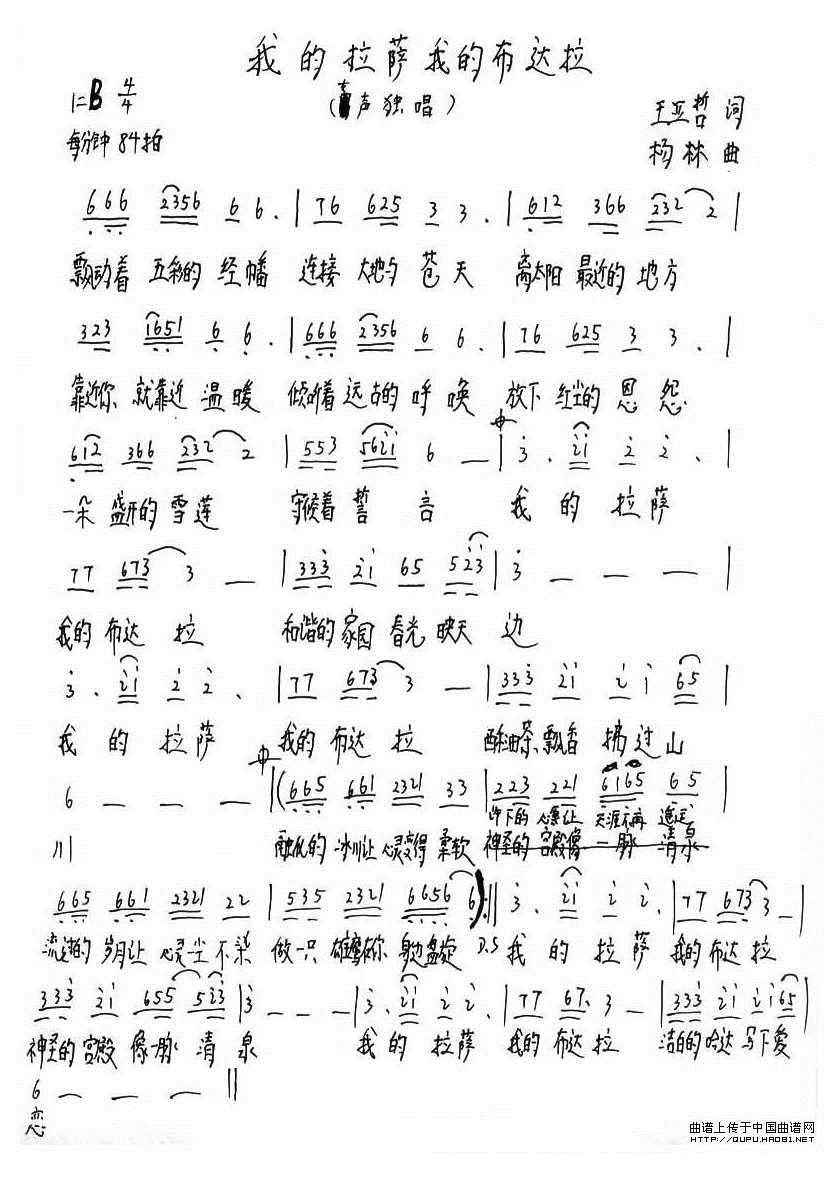 我的拉萨我的布达拉
1=B 4/4
（声独唱）
王亚哲 词
每分钟84拍
杨林 曲
666 2356 6 6. | 76 625 3 3. | 612 366 232 2 |
飘动着 五彩的 经幡 连接 大地与 苍天 离太阳 最近的 地方
323 1651 6 6. | 666 2356 6 6. | 76 625 3 3. |
靠近你 就靠近 温暖 倾听着 远古的 呼唤 放下 红尘的 恩怨
612 366 232 2 | 553 5621 6 — | 3. 21 2 2. |
一朵 盛开的 雪莲 守候着 誓言 我的拉萨
77 673 3 — | 333 21 65 523 | 3 — — — |
我的 布达拉 和谐的 家园 春光 映天边
3. 21 2 2. | 77 673 3 — | 333 21 2 1 65 |
我的拉萨 我的 布达拉 酥油茶 飘香 拂过山
6 — — — | (665 661 2321 33 | 223 221 6165 65 |
许下的 心愿让 天涯不再 遥远
川 融化的 冰川让 心灵变得 柔软 神圣的 宫殿像 一脉 清泉
665 661 2321 22 | 535 2321 6656 6) :|| 3. 21 2 2. | 77 673 3 — |
流淌的 岁月让 心灵尘 不染 做一只 雄鹰在你 身边盘旋 D.S 我的拉萨 我的 布达拉
333 21 655 523 | 3 — — — | 3. 21 2 2. | 77 67. 3 — | 333 21 21 65 |
神圣的 宫殿 像一脉 清泉 我的拉萨 我的 布达拉 洁白的 哈达 写下爱
6 — — — ||
恋
曲谱上传于中国曲谱网
HTTP://QUPU.HAO81.NET